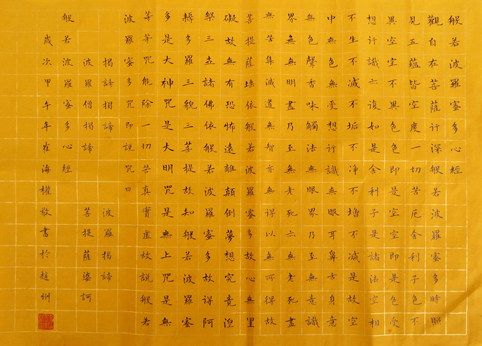 般若波羅蜜多心經
觀自在菩薩行深般若波羅蜜多時照
見五蘊皆空度一切苦厄舍利子色不
異空空不異色色即是空空即是色受
想行識亦復如是舍利子是諸法空相
不生不滅不垢不淨不增不減是故空
中無色無受想行識無眼耳鼻舌身意
無色聲香味觸法無眼界乃至無意識
界無無明盡乃至無老死亦無老死盡
無苦集滅道無智亦無得以無所得故
菩提薩埵依般若波羅蜜多故心無罣
礙故無有恐怖遠離顛倒夢想究竟涅
槃三世諸佛依般若波羅蜜多故得阿
耨多羅三藐三菩提故知般若波羅蜜
多是大神咒是大明咒是無上咒是無
等等咒能除一切苦真實虛故說般若
波羅蜜多咒即說咒曰
揭諦揭諦 波羅揭諦
波羅僧揭諦 菩提薩婆訶
般若波羅蜜多心經
歲次甲午年 海 敬書於趙州